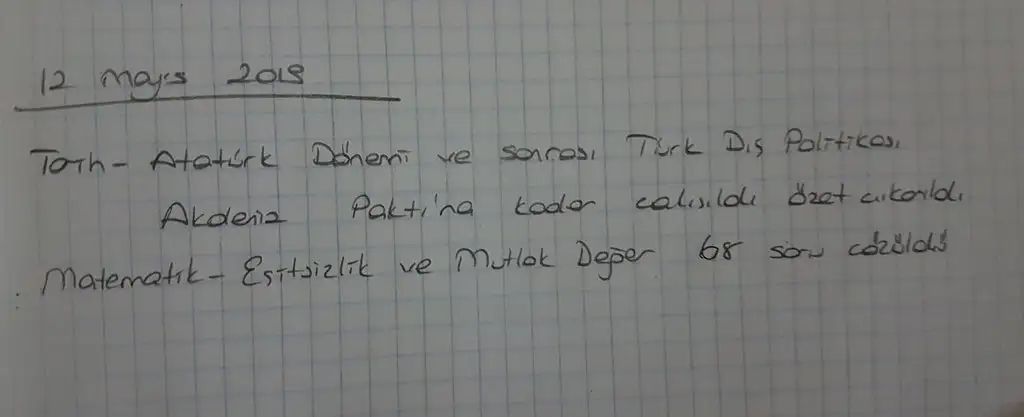 12 Mayıs 2019
Tarih - Atatürk Dönemi ve sonrası Türk Dış Politikası
Akdeniz Paktı'na kadar çalışıldı özet çıkarıldı
Matematik - Eşitsizlik ve Mutlak Değer 68 soru çözüldü